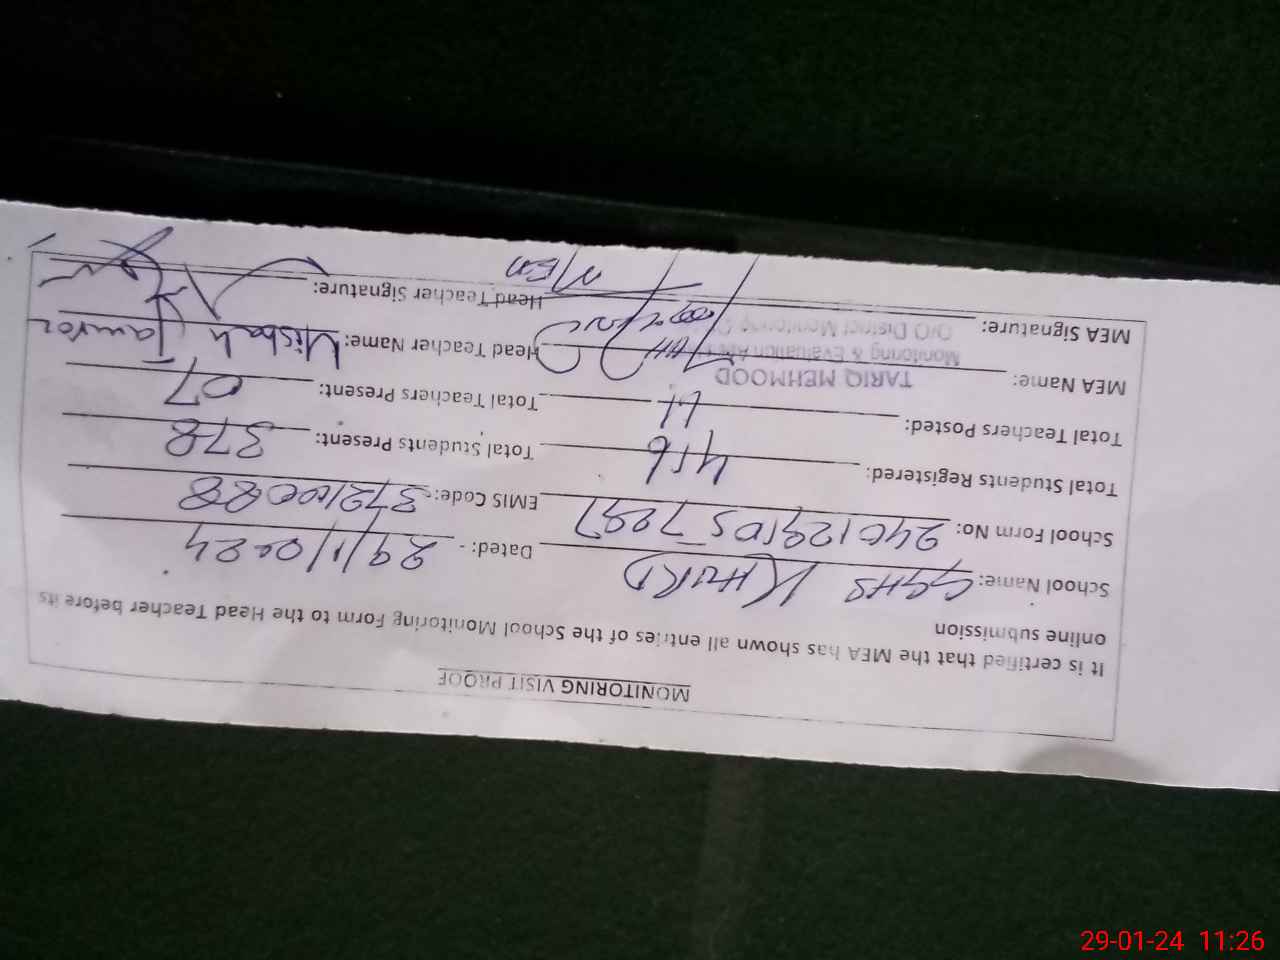 MONITORING VISIT PROOF
It is certified that the MEA has shown all entries of the School Monitoring Form to the Head Teacher before its
online submission
School Name: GGHS KHURD Dated: - 29/1/2024
School Form No: EMIS Code:
Total Students Registered: 416 Total Students Present: 378
Total Teachers Posted: 11 Total Teachers Present: 07
MEA Name: TARIQ MEHMOOD Head Teacher Name: Misbah
Monitoring & Evaluation
O/O District Monitoring
MEA Signature: Head Teacher Signature:
29-01-24 11:26